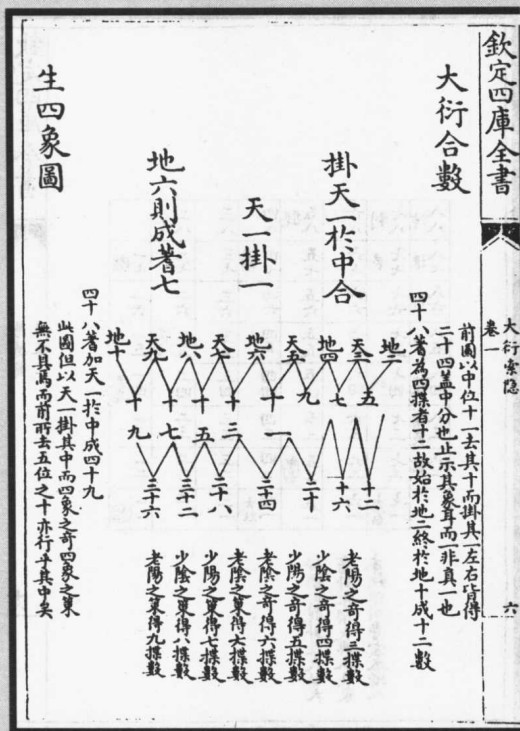 欽定四庫全書
大衍索隱
卷一
六
前圖以中位十一去其十而掛其一左右皆得
二十四蓋中分也止示其象耳而一非真一也
四十八蓍為四揲者十二故始於地二終於地十成十二數
大衍合數
掛天一於中合
天一掛一
地六則成蓍七
生四象圖
地二
天三
地四
天五
地六
天七
地八
天九
地十
五
七
九
十一
十三
十五
十七
十九
十二
十六
二十
二十四
二十八
三十二
三十六
老陽之奇得三揲數
少陰之奇得四揲數
少陽之奇得五揲數
老陰之奇得六揲數
老陰之策得六揲數
少陽之策得七揲數
少陰之策得八揲數
老陽之策得九揲數
四十八蓍加天一於中成四十九
此圖但以天一掛其中而四象之奇四象之策
無不具焉而前所去五位之十亦行乎其中矣